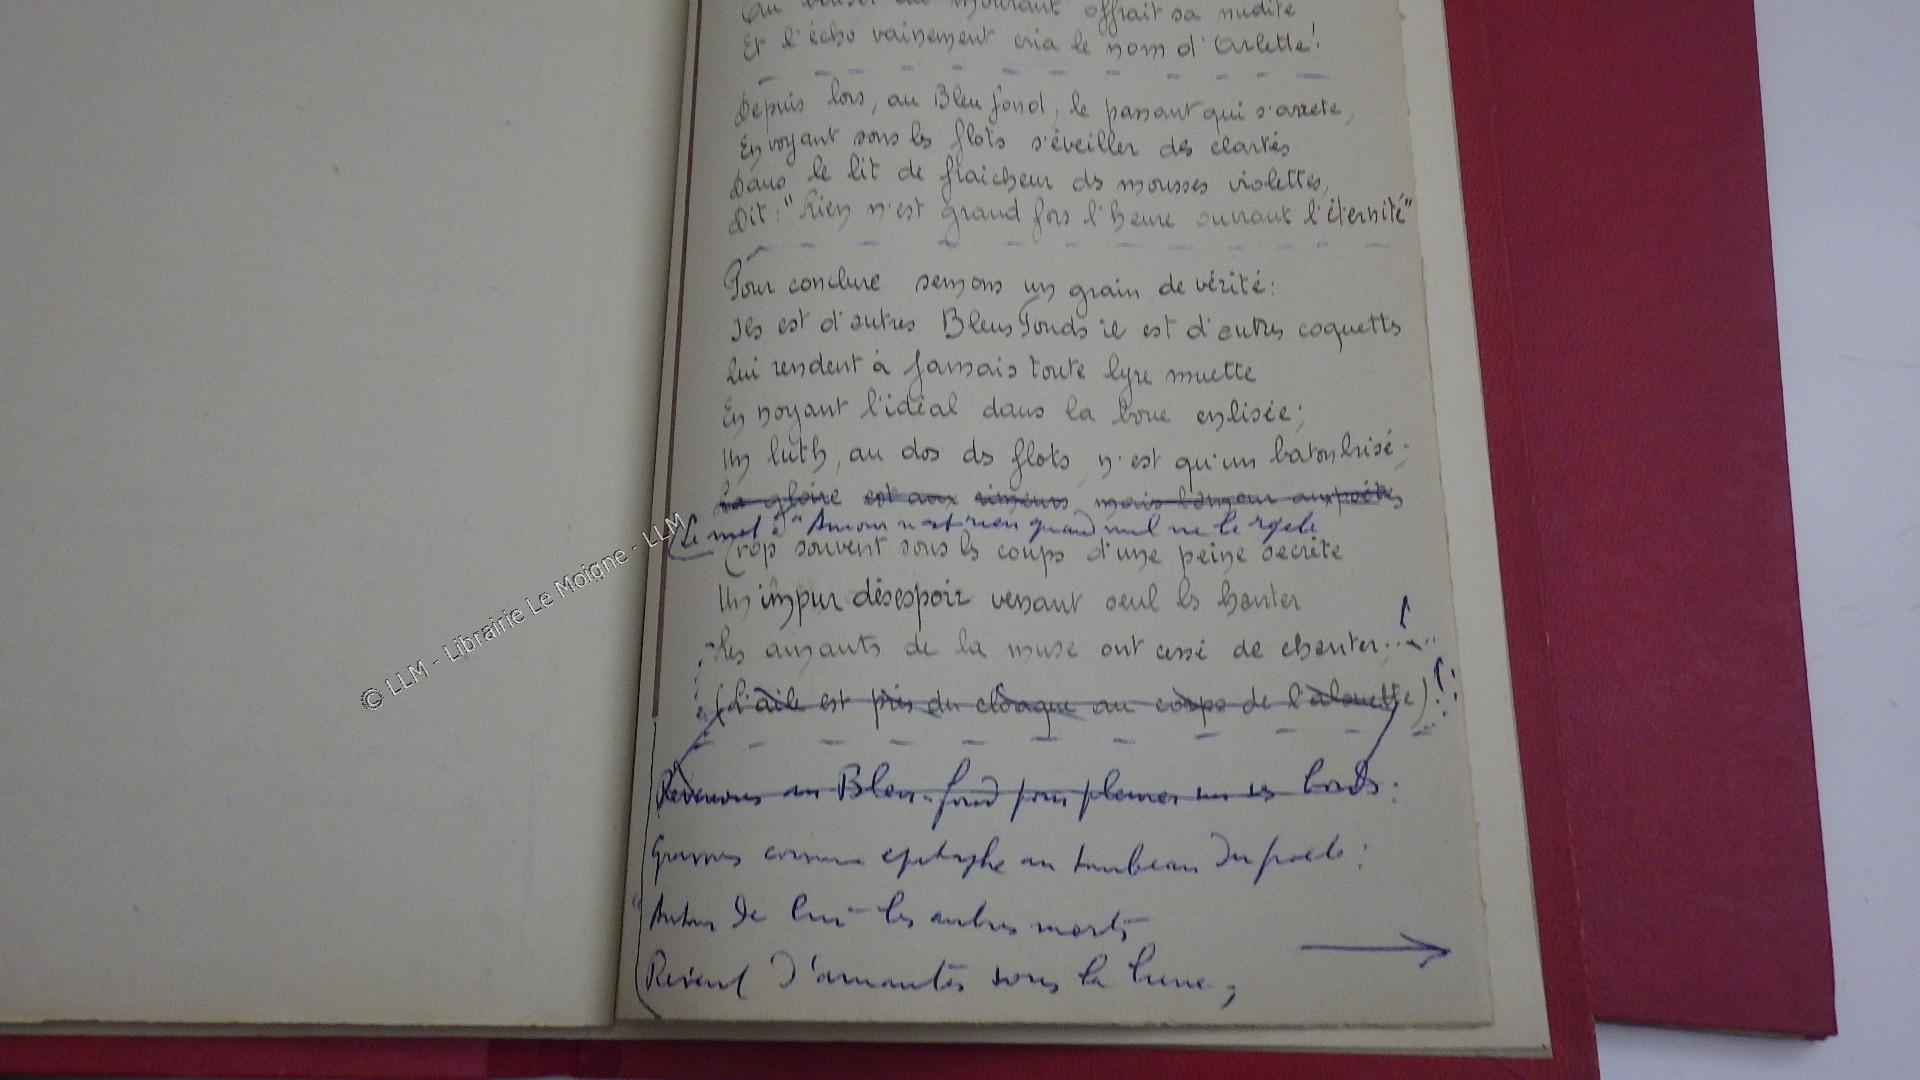 Au baiser du mourant offrait sa nudité
Et l'écho vainement cria le nom d'Arlette!
Depuis lors, au Bleu fond, le passant qui s'arrete,
En voyant sous les flots s'éveiller des clartés
Dans le lit de fraicheur des mousses violettes,
Dit: "Rien n'est grand fors l'heure ouvrant l'éternité"
Pour conclure semons un grain de vérité:
Ils est d'autres Bleus Fonds il est d'autres coquettes
Qui rendent à jamais toute lyre muette
En noyant l'idéal dans la boue enlisée;
Un luth, au dos des flots, n'est qu'un baton brisé;
La gloire est aux rimeurs, mais l'amour aux poètes
Le mot d'"Amour n'est rien quand nul ne le répète
Trop souvent sous les coups d'une peine secrète
Un impur désespoir venant seul les hanter
Les amants de la muse ont cessé de chanter..!...
(L'aile est près du cloaque au corps de l'alouette)!
Revenons au Bleu-fond pour pleurer sur ses bords:
Gravons comme epitaphe au tombeau du poete:
"Autour de lui les autres morts
Revent d'amantes sous la lune,
© LLM - Librairie Le Moigne - LLM